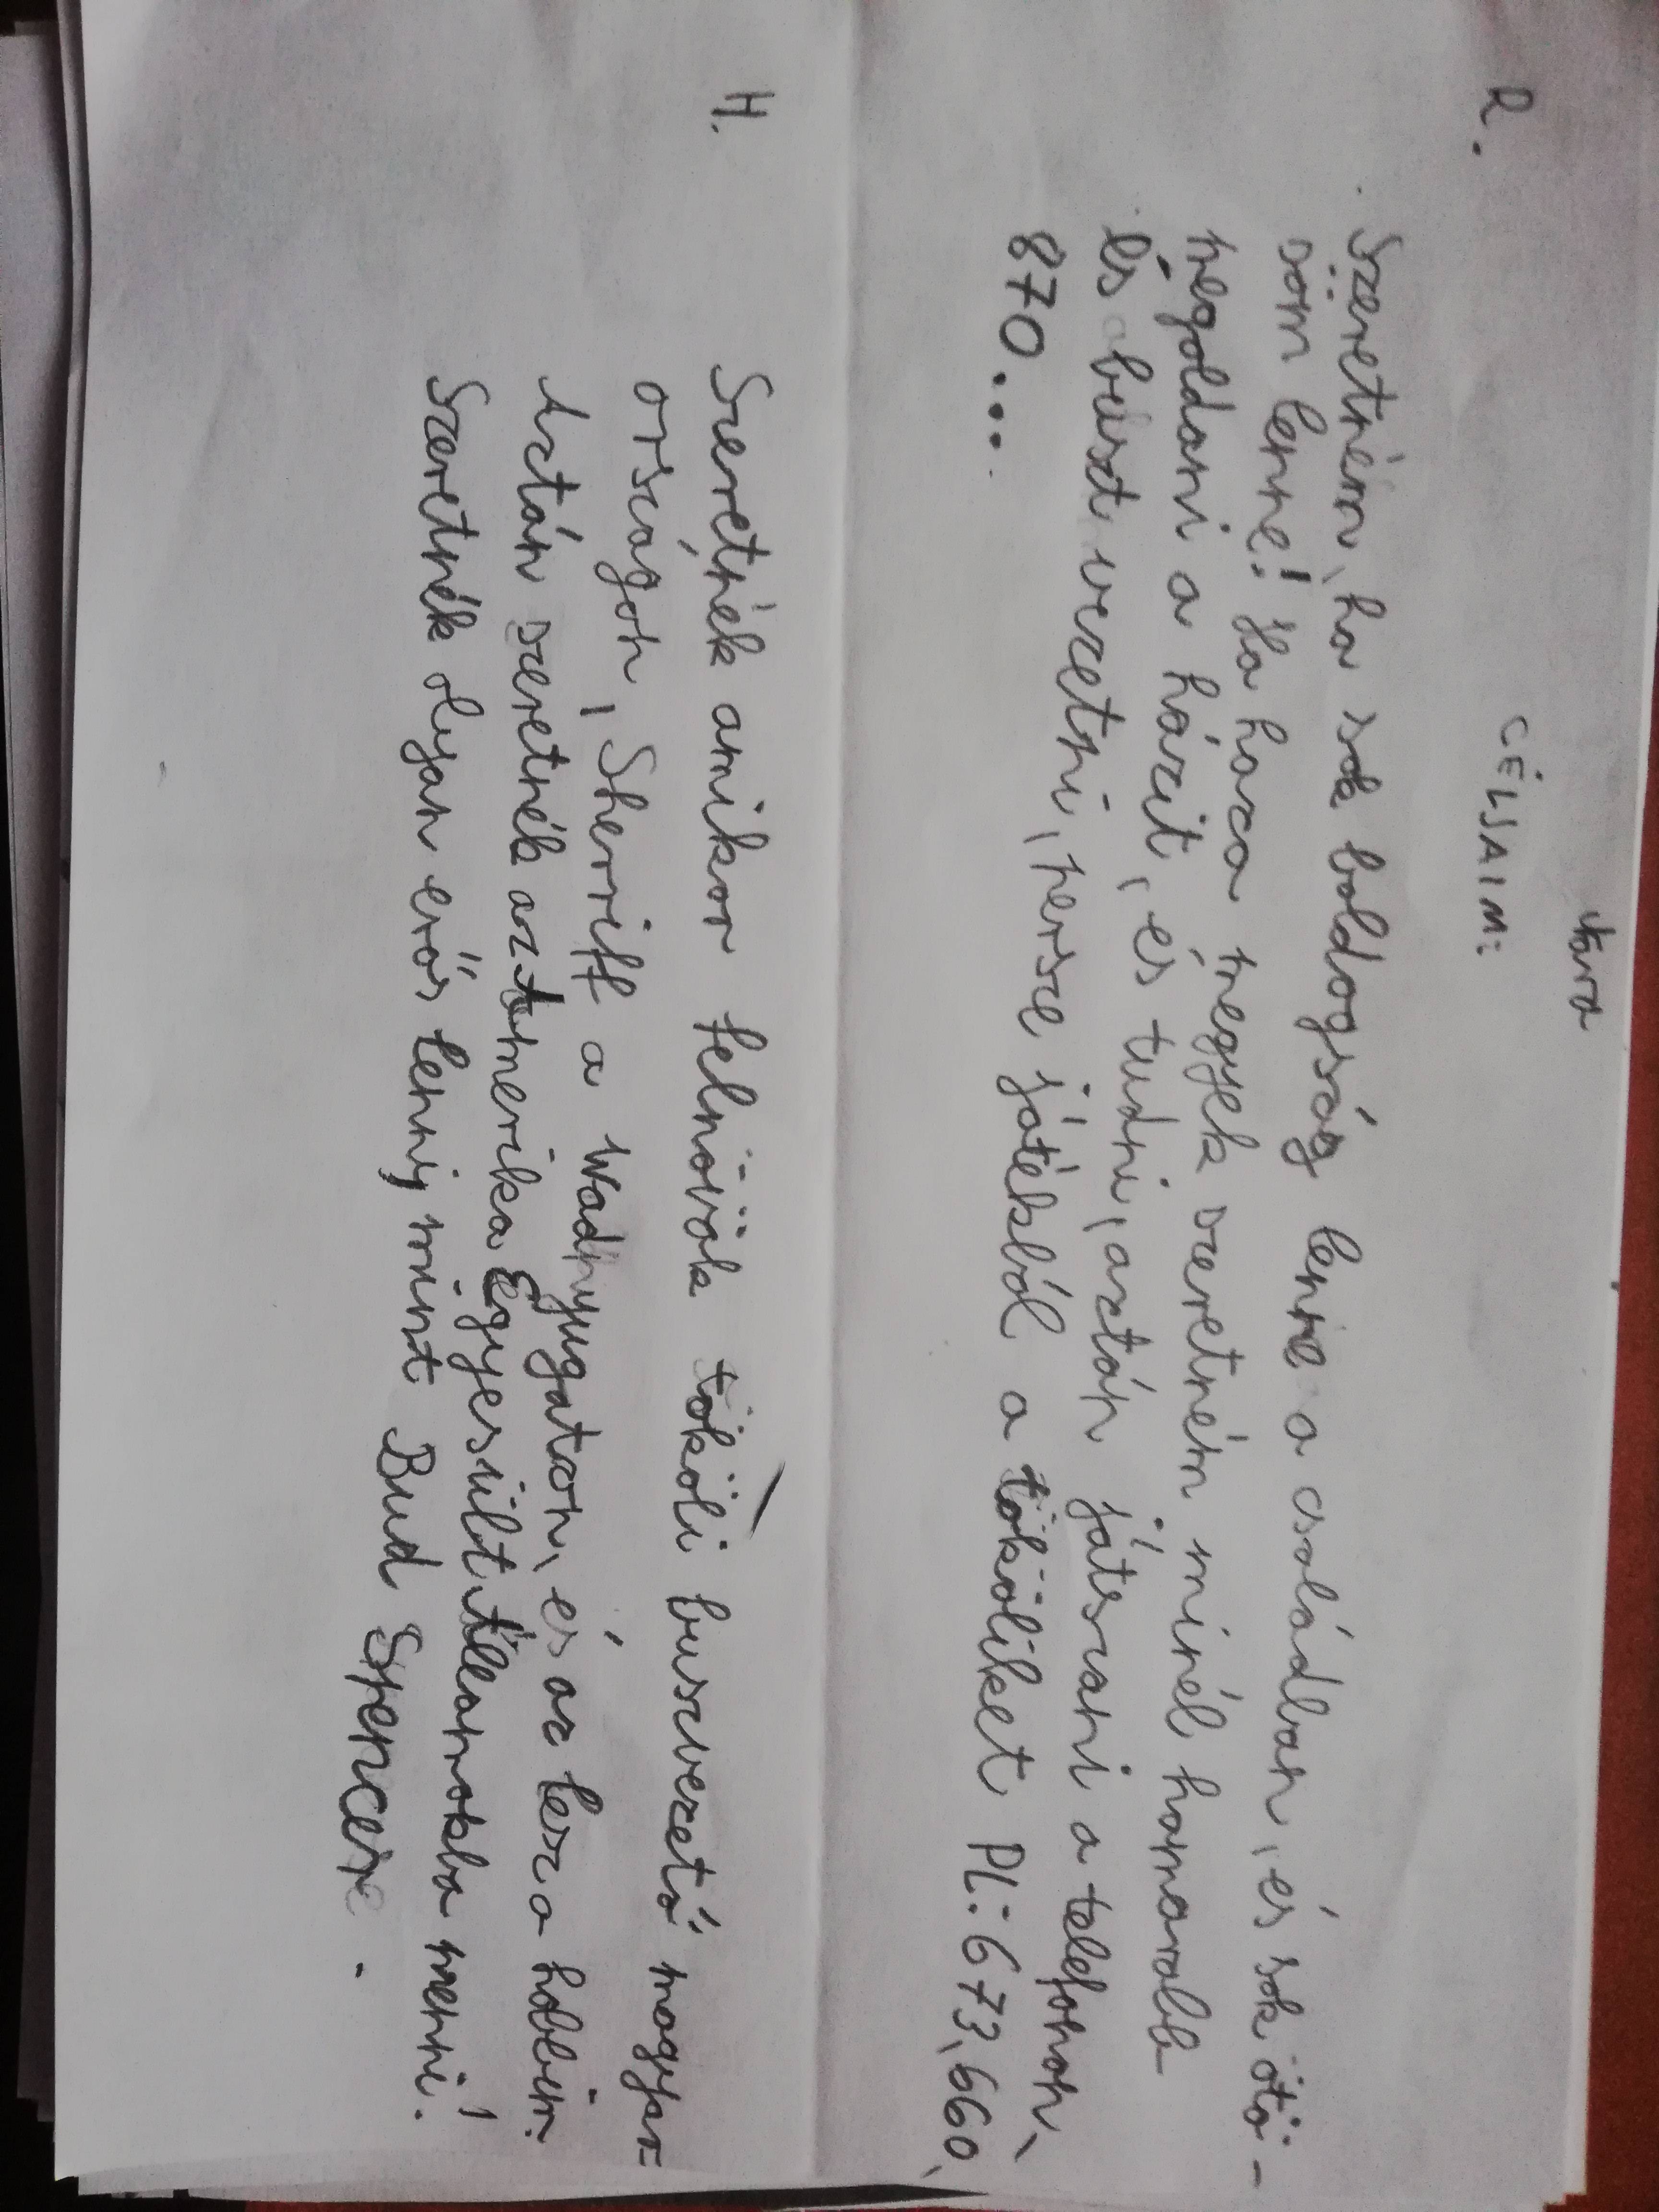 CÉLJAIM:
R.
Szeretném, ha sok boldogság lenne a családban, és sok ötö-
söm lenne! Ha haza megyek szeretném minél hamarabb
megoldani a házit, és tudni, aztán játszani a telefonon,
és buszt vezetni, persze játékból a tököliket PL: 673, 660,
870...
H.
Szeretnék amikor felnövök tököli buszvezető magyar=
országon, Sherriff a Wadnyugaton, és az lesz a hobbim.
Aztán szeretnék az Amerika Egyesült Államokba menni!
Szeretnék olyan erős lenni, mint Bud Spencer.